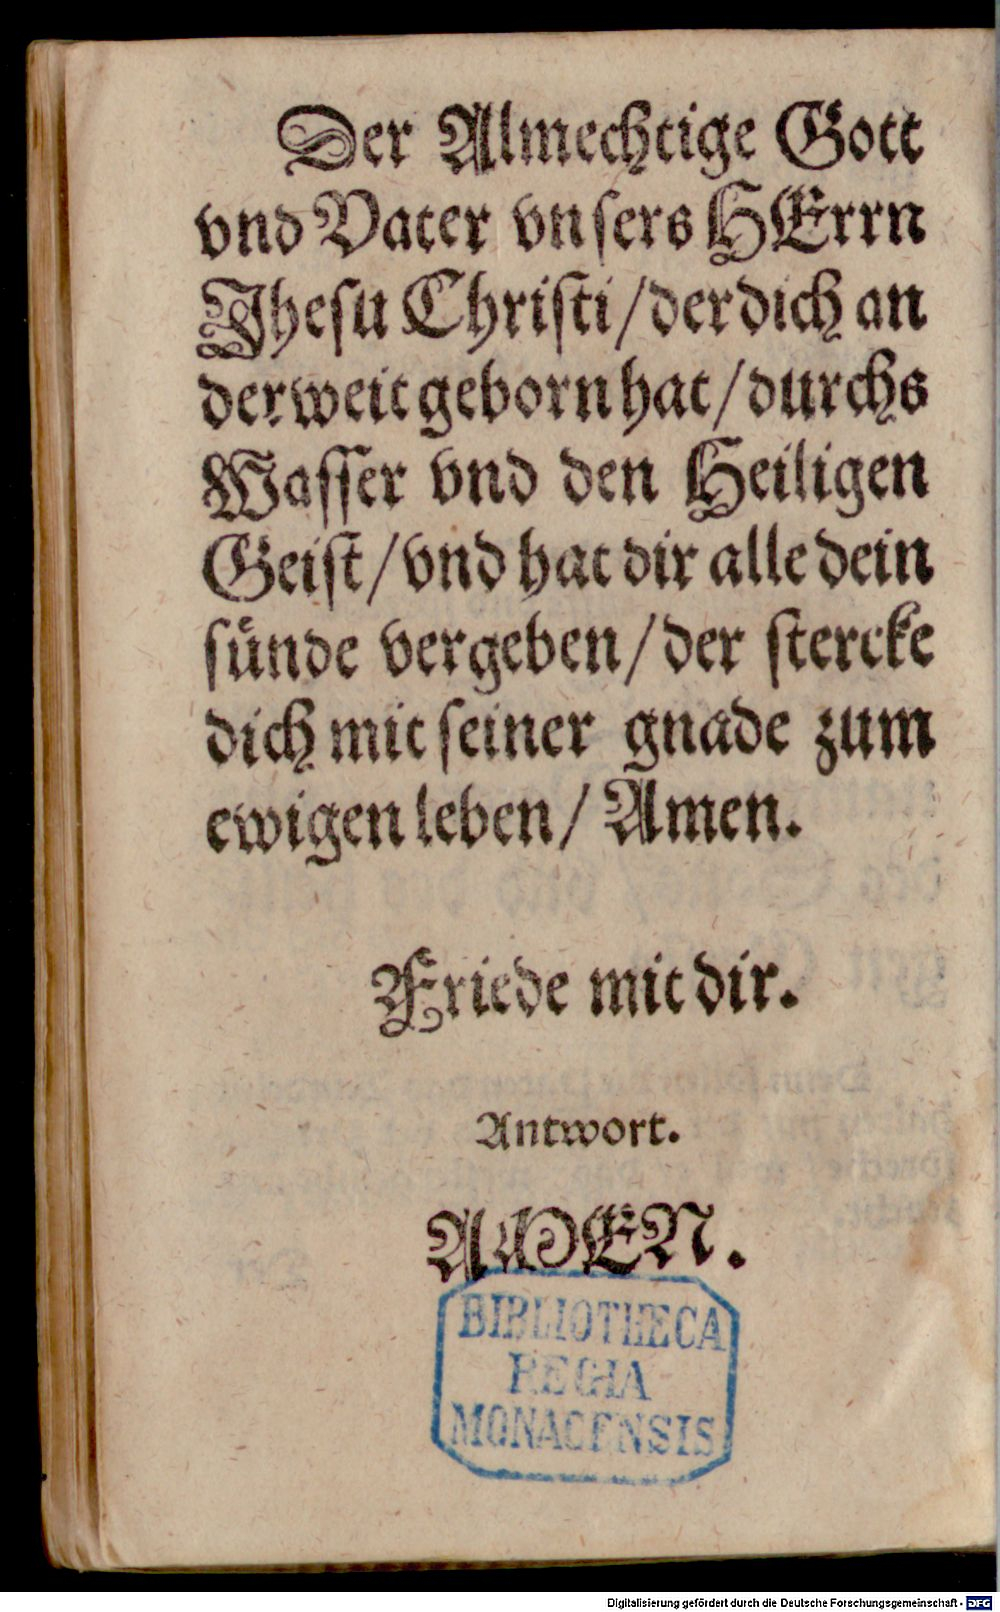 Der Almechtige Gott
vnd Vater vnsers HErrn
Jhesu Christi / der dich an
derweit geborn hat / durchs
Wasser vnd den Heiligen
Geist / vnd hat dir alle dein
sünde vergeben / der stercke
dich mit seiner gnade zum
ewigen leben / Amen.
Friede mit dir.
Antwort.
AMEN.
BIBLIOTHECA
REGIA
MONACENSIS
Digitalisierung gefördert durch die Deutsche Forschungsgemeinschaft - DFG